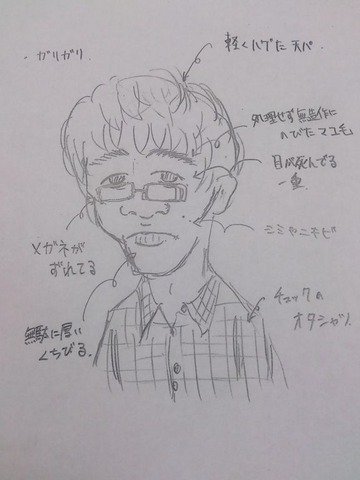 ・ガリガリ.
軽くハゲた天パ.
処理せず無造作に
のびたマユ毛
目が死んでる
一重
シミやニキビ
メガネが
ずれてる
チェックの
オタシャツ
無駄に厚い
くちびる.